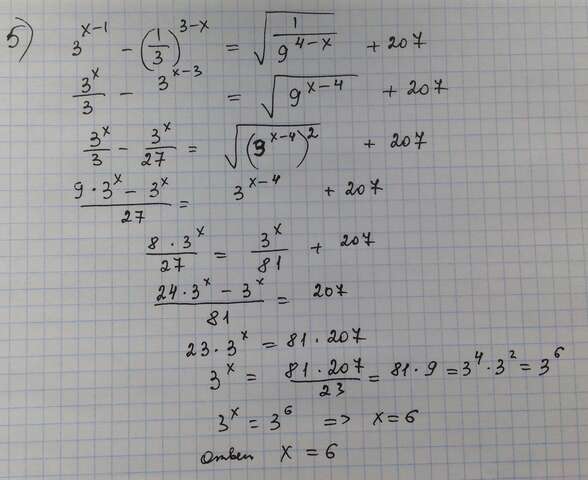 5) 3^(x-1) - (1/3)^(3-x) = √(1/9^(4-x)) + 207
3^x/3 - 3^(x-3) = √(9^(x-4)) + 207
3^x/3 - 3^x/27 = √((3^(x-4))^2) + 207
(9·3^x - 3^x)/27 = 3^(x-4) + 207
8·3^x/27 = 3^x/81 + 207
(24·3^x - 3^x)/81 = 207
23·3^x = 81·207
3^x = 81·207/23 = 81·9 = 3^4·3^2 = 3^6
3^x = 3^6 => x=6
ответ x = 6